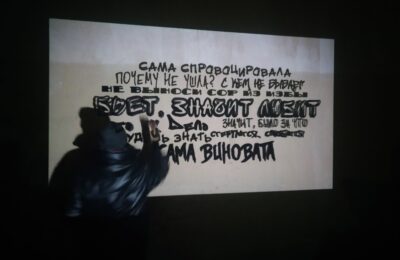 САМА СПРОВОЦИРОВАЛА
ПОЧЕМУ НЕ УШЛА? С КЕМ НЕ БЫВАЕТ
НЕ ВЫНОСИ СОР ИЗ ИЗБЫ
БЬЕТ, ЗНАЧИТ ЛЮБИТ
ДЕЛО ЗНАЧИТ, БЫЛО ЗА ЧТО
ЗНАТЬ СТЕРПИТСЯ, СЛЮБИТСЯ
САМА ВИНОВАТА